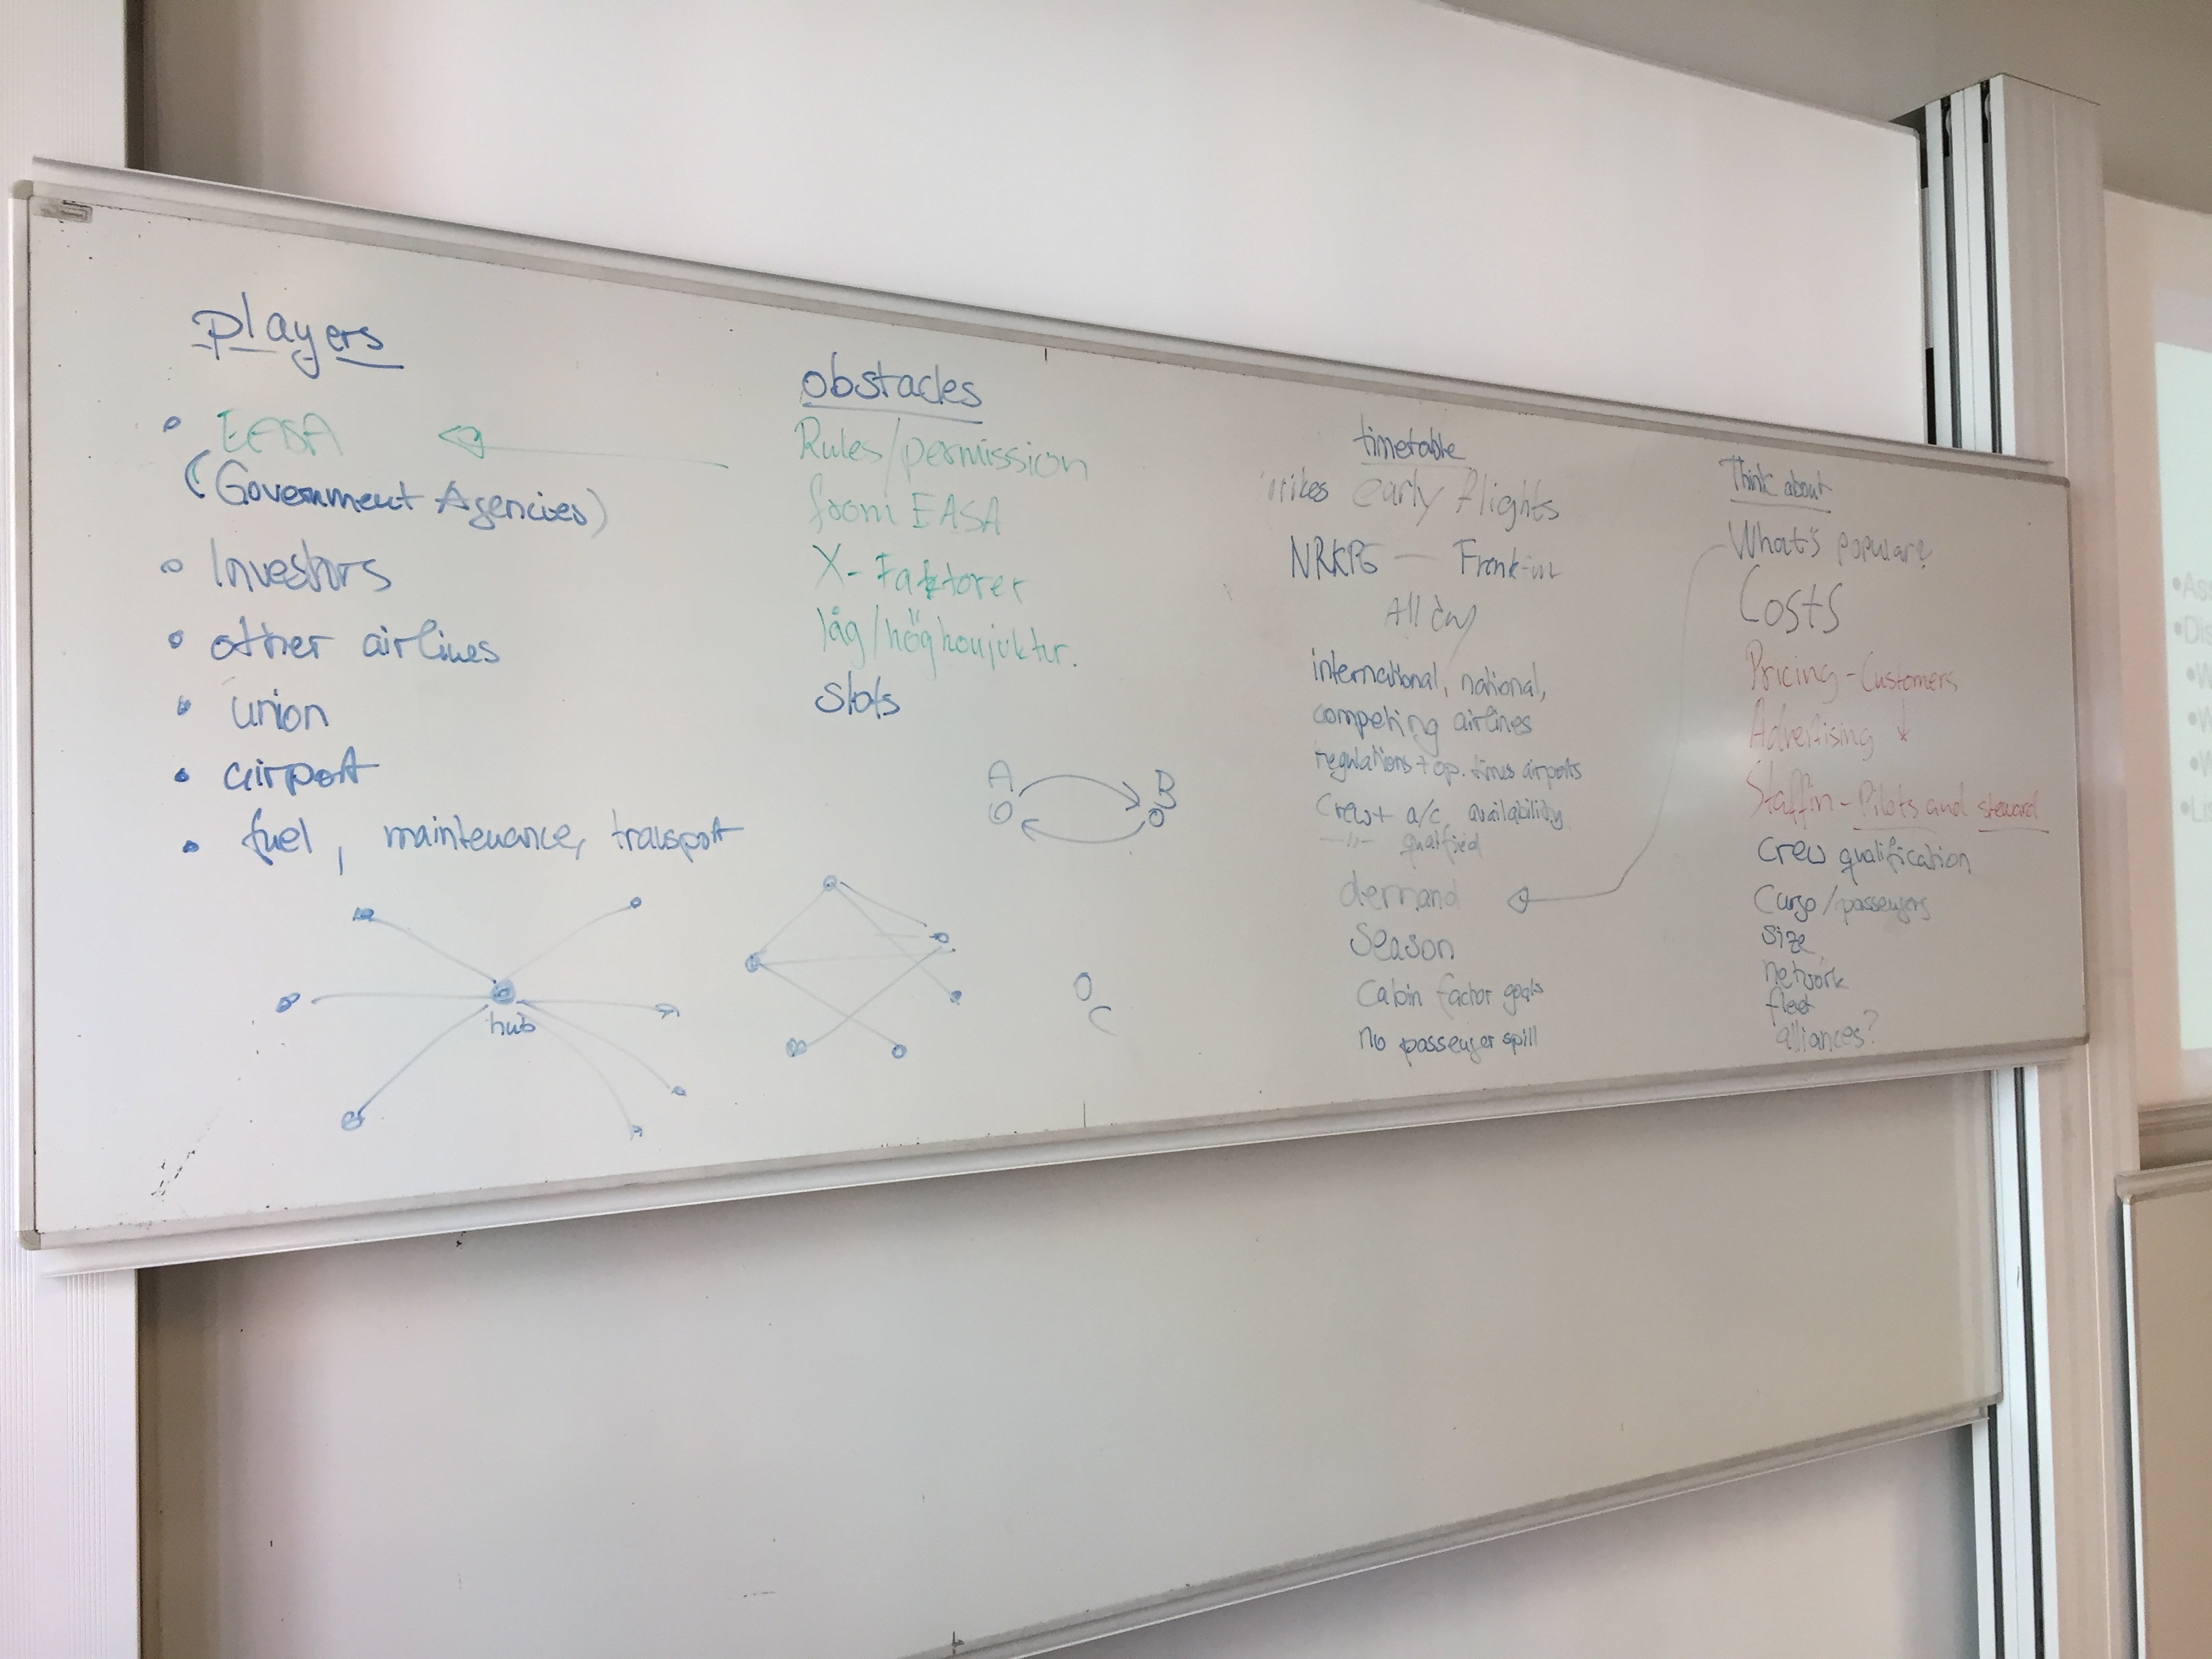 players
EASA
(Government Agencies)
Investors
other airlines
union
airport
fuel, maintenance, transport
hub
obstacles
Rules/permission
from EASA
X-Faktorer
låg/högkonjuktur.
Slots
A
B
C
timetable
early flights
NRKPG —
All day
international, national,
competing airlines
regulations + op. times airports
Crew + a/c availability
-"- qualified
demand
Season
Cabin factor goals
No passenger spill
Think about
What's popular?
Costs
Pricing - Customers
Advertising ↓
Staffin - Pilots and steward
Crew qualification
Cargo/passengers
size
network
fleet
alliances?